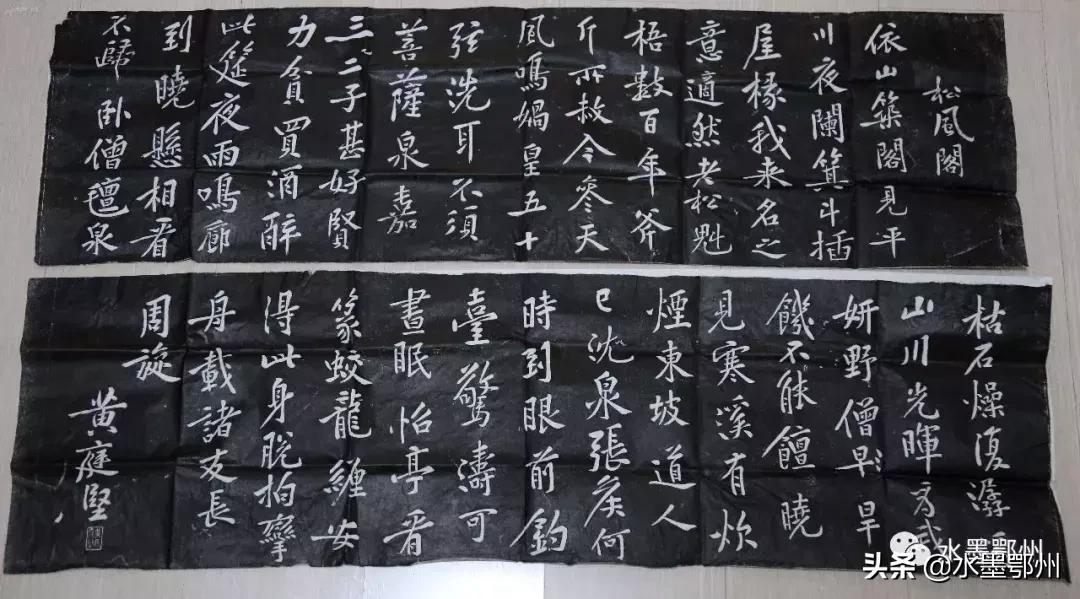 松風閣
依山築閣見平
川夜闌箕斗插
屋椽我来名之
意適然老松魁
梧數百年斧
斤所赦今參天
風鳴媧皇五十
弦洗耳不須
菩薩泉嘉
三二子甚好賢
力貪買酒醉
此筵夜雨鳴廊
到曉懸相看
不歸卧僧氊泉
枯石燥復潺
山川光暉為我
妍野僧早旱
饑不能饘曉
見寒溪有炊
煙東坡道人
已沈泉張侯何
時到眼前釣
臺驚濤可
晝眠怡亭看
篆蛟龍纏安
得此身脫拘攣
舟載諸友長
周旋
黃庭堅
水墨鄂州
头条 @水墨鄂州